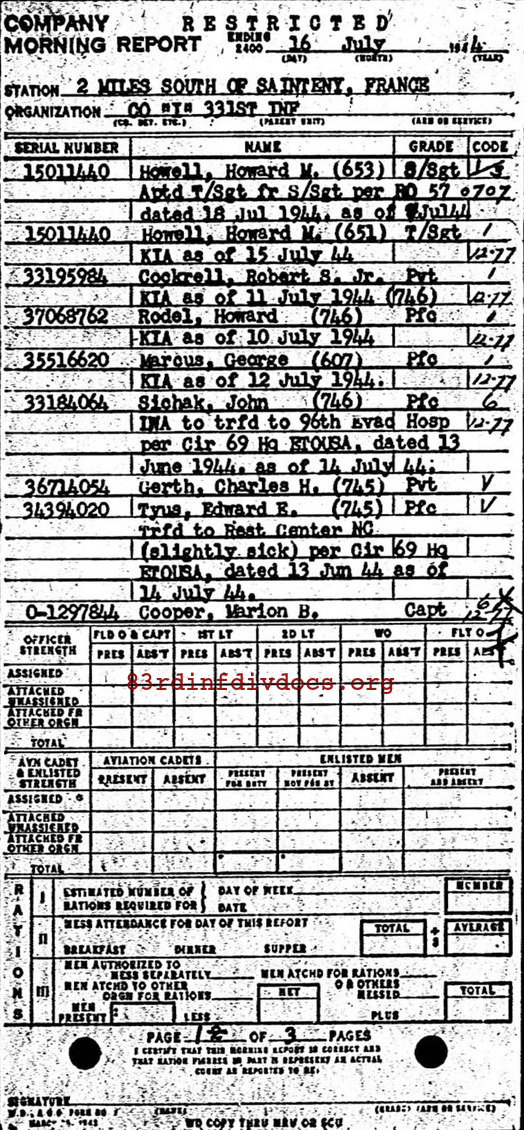 COMPANY RESTRICTED
MORNING REPORT ENDING 2400 16 July 1944
(DAY) (MONTH) (YEAR)
STATION 2 MILES SOUTH OF SAINTENY, FRANCE
ORGANIZATION CO "I" 331ST INF
(CO. DET. ETC.) (PARENT UNIT) (ARM OR SERVICE)
SERIAL NUMBER NAME GRADE CODE
15011440 Howell, Howard M. (653) S/Sgt
Aptd T/Sgt fr S/Sgt per RO 57 0707
dated 18 Jul 1944. as of Jul44
15011440 Howell, Howard M. (651) T/Sgt 1
KIA as of 15 July 44 12-77
33195984 Cockrell, Robert S. Jr. Pvt 1
KIA as of 11 July 1944 (746) 12-77
37068762 Rodel, Howard (746) Pfc 1
KIA as of 10 July 1944 12-77
35516620 Marcus, George (607) Pfc 1
KIA as of 12 July 1944. 12-77
33184064 Sichak, John (746) Pfc 6
IWA to trfd to 96th Evad Hosp 12-77
per Cir 69 Hq ETOUSA, dated 13
June 1944. as of 14 July 44.
36714054 Gerth, Charles H. (745) Pvt V
34394020 Tyus, Edward E. (745) Pfc V
Trfd to Rest Center NC
(slightly sick) per Cir 69 Hq
ETOUSA, dated 13 Jun 44 as of
14 July 44.
O-1297844 Cooper, Marion B. Capt
OFFICER STRENGTH FLD O & CAPT 1ST LT 2D LT WO FLT O
PRES ABS'T PRES ABS'T PRES ABS'T PRES ABS'T PRES
ASSIGNED
83rdinfdivdocs.org
ATTACHED UNASSIGNED
ATTACHED FR OTHER ORGN
TOTAL
AVN CADET & ENLISTED STRENGTH AVIATION CADETS ENLISTED MEN
PRESENT ABSENT PRESENT FOR DUTY PRESENT NOT FOR DY ABSENT PRESENT AND ABSENT
ASSIGNED
ATTACHED UNASSIGNED
ATTACHED FR OTHER ORGN
TOTAL
RATIONS
I ESTIMATED NUMBER OF RATIONS REQUIRED FOR DAY OF WEEK DATE NUMBER
II MESS ATTENDANCE FOR DAY OF THIS REPORT TOTAL ÷ 3 AVERAGE
BREAKFAST DINNER SUPPER
III MEN AUTHORIZED TO MESS SEPARATELY MEN ATCHD FOR RATIONS
MEN ATCHD TO OTHER ORGN FOR RATIONS NET O R OTHERS MESSED TOTAL
MEN PRESENT LESS PLUS
PAGE OF 3 PAGES
I CERTIFY THAT THIS MORNING REPORT IS CORRECT AND
THAT RATION FIGURES IN PART II REPRESENT AN ACTUAL
COUNT AS REPORTED TO ME.
SIGNATURE
(NAME) (GRADE) (ARM OR SERVICE)
W.D., A.G.O. FORM NO 1
WD COPY THRU MRU OR SCU